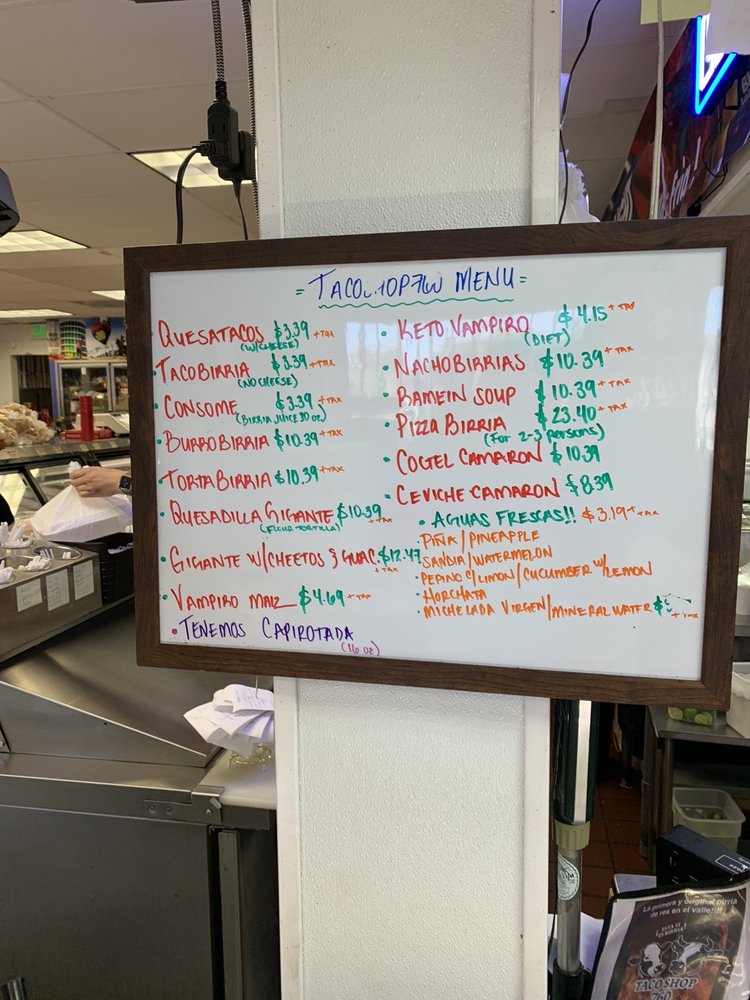 = TACOSHOP760 MENU =
• QUESATACOS $3.39 + TAX
(W/CHEESE)
• TACOBIRRIA $3.39 + TAX
(NO CHEESE)
• CONSOME $3.39 + TAX
(BIRRIA JUICE 20 oz)
• BURROBIRRIA $10.39 + TAX
• TORTABIRRIA $10.39 + TAX
• QUESADILLA GIGANTE $10.39 + TAX
(FLOUR TORTILLA)
• GIGANTE W/CHEETOS & GUAC. $12.47 + TAX
• VAMPIRO MAIZ $4.69 + TAX
• TENEMOS CAPIROTADA
(16 oz)
• KETO VAMPIRO $4.15 + TAX
(DIET)
• NACHOBIRRIAS $10.39 + TAX
• RAMEIN SOUP $10.39 + TAX
• PIZZA BIRRIA $23.40 + TAX
(FOR 2-3 PERSONS)
• COCTEL CAMARON $10.39
• CEVICHE CAMARON $8.39
• AGUAS FRESCAS!! $3.19 + TAX
• PIÑA/PINEAPPLE
• SANDIA/WATERMELON
• PEPINO C/LIMON/CUCUMBER W/LEMON
• HORCHATA
• MICHELADA VIRGEN/MINERAL WATER $ + TAX
La primera y original birria
de res en el valle!!!!
¡ ESTA SI
ES BIRRIA !
TACOSHOP
760